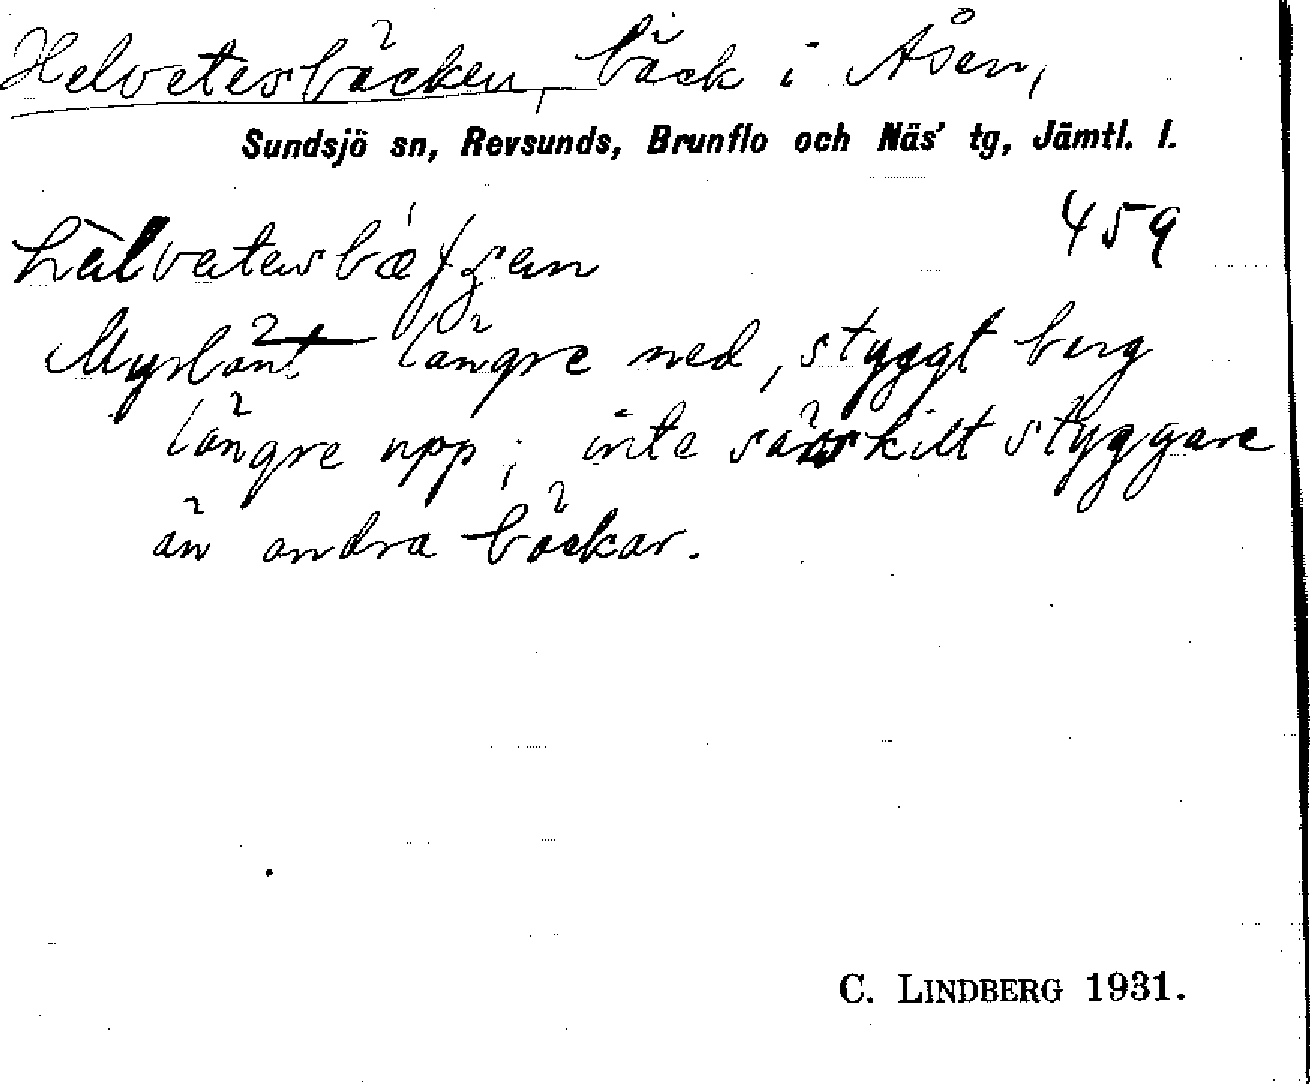 Helvetesbäcken, bäck i Åsen,
Sundsjö sn, Revsunds, Brunflo och Näs' tg, Jämtl. l.
459
Myrlänt längre ned, styggt berg
längre upp; inte särskilt styggare
än andra bäckar.
C. LINDBERG 1931.